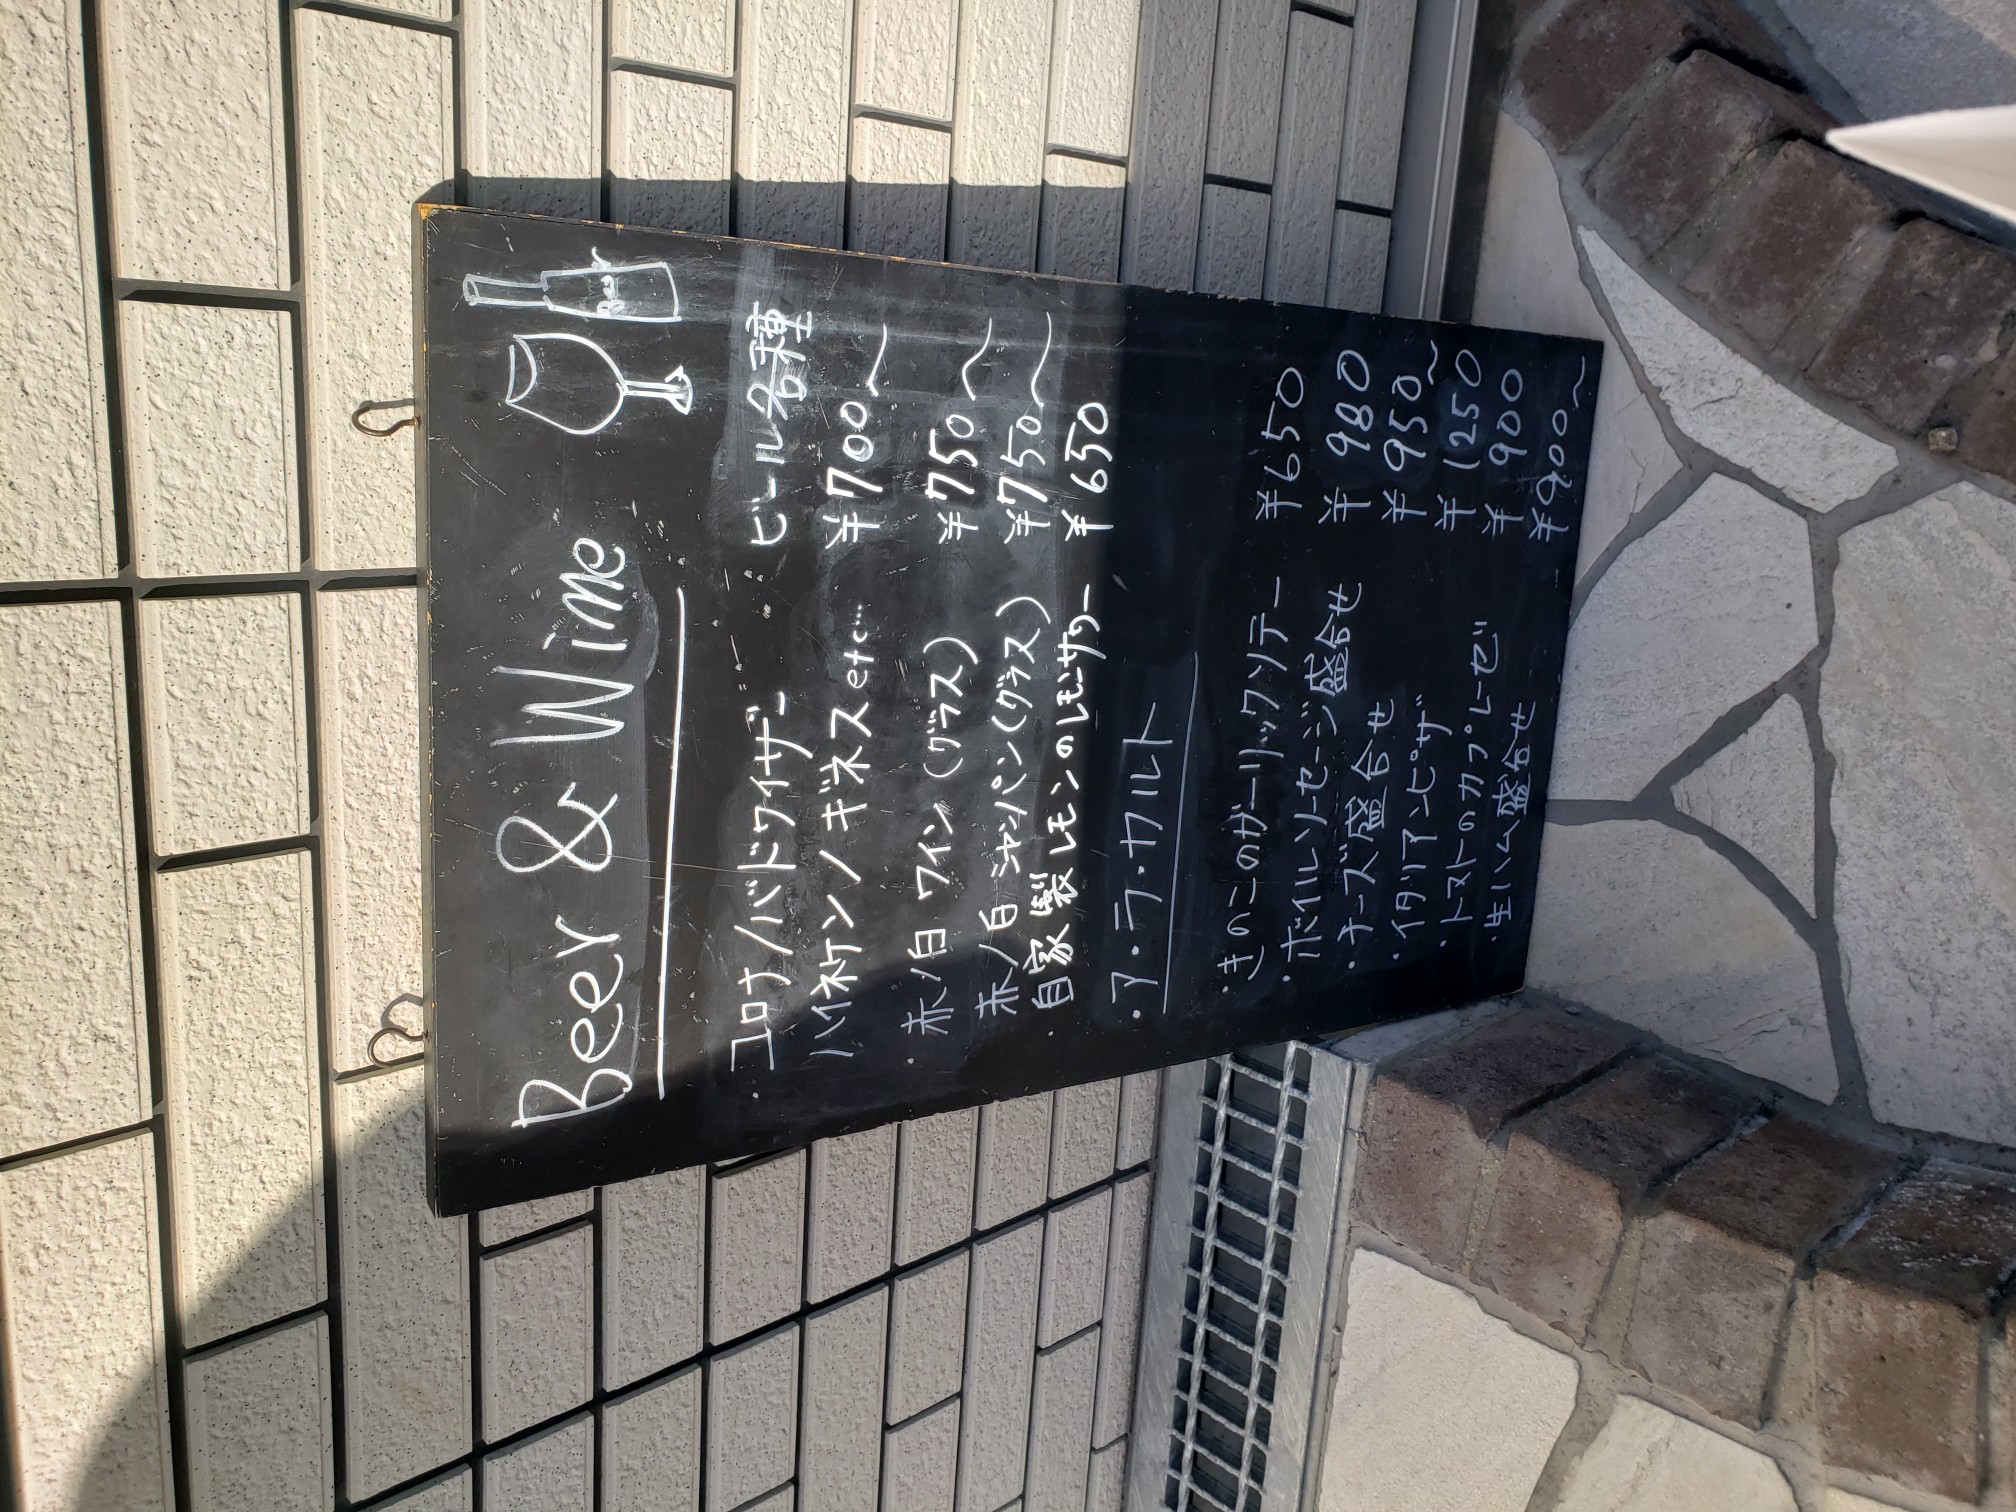 Beer & Wine
Beer
・コロナ/バドワイザー ビール各種
ハイネケン/ギネスetc… ¥700〜
・赤/白 ワイン(グラス) ¥750〜
赤/白 シャンパン(グラス) ¥750〜
・自家製レモンのレモンサワー ¥650
・ア・ラ・カルト
・きのこのガーリックソテー ¥650
・ボイルソーセージ盛合せ ¥980
・チーズ盛合せ ¥950〜
・イタリアンピザ ¥1250
・トマトのカプレーゼ ¥900
・生ハム盛合せ ¥900〜